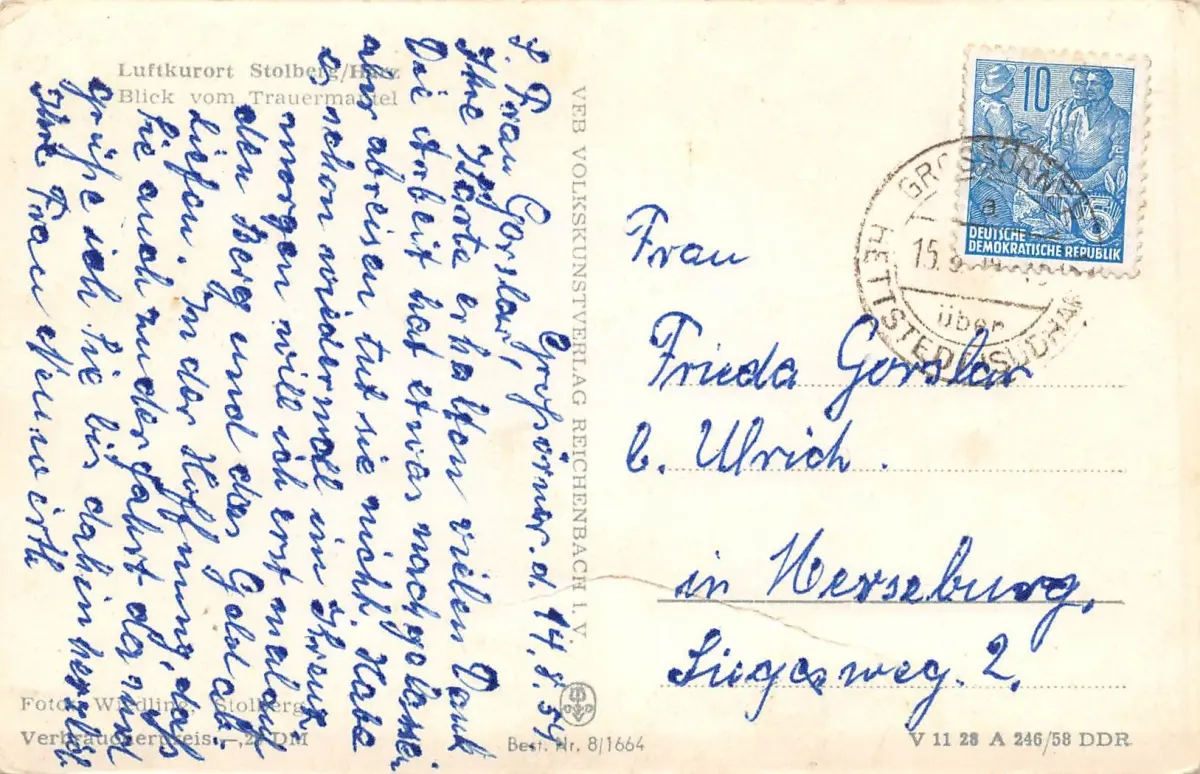 Luftkurort Stolberg/Harz
Blick vom Trauermantel
Großörner. d. 14.8.59
L. Frau Gorslar,
Ihre Karte erhalten vielen Dank
Die Arbeit hat etwas nachgelassen
aber abreisen tut sie nicht. Habe
es schon wiedermal im Kreuz
morgen will ich erst mal auf
den Berg und das Geld ab
liefen. In der Hoffnung, daß
Sie auch mit der Fahrt da sind
grüße ich Sie bis dahin herzlich
Ihre Frau Neuwirth
Foto: Wiedling, Stolberg
Verbraucherpreis —,20 DM
VEB VOLKSKUNSTVERLAG REICHENBACH i. V.
Best. Nr. 8/1664
10
5
DEUTSCHE
DEMOKRATISCHE REPUBLIK
GROSSÖRNER
a
15.8.
über
HETTSTEDT
Frau
Frieda Gorslar
b. Ulrich.
in Merseburg,
Siegesweg. 2.
V 11 28 A 246/58 DDR